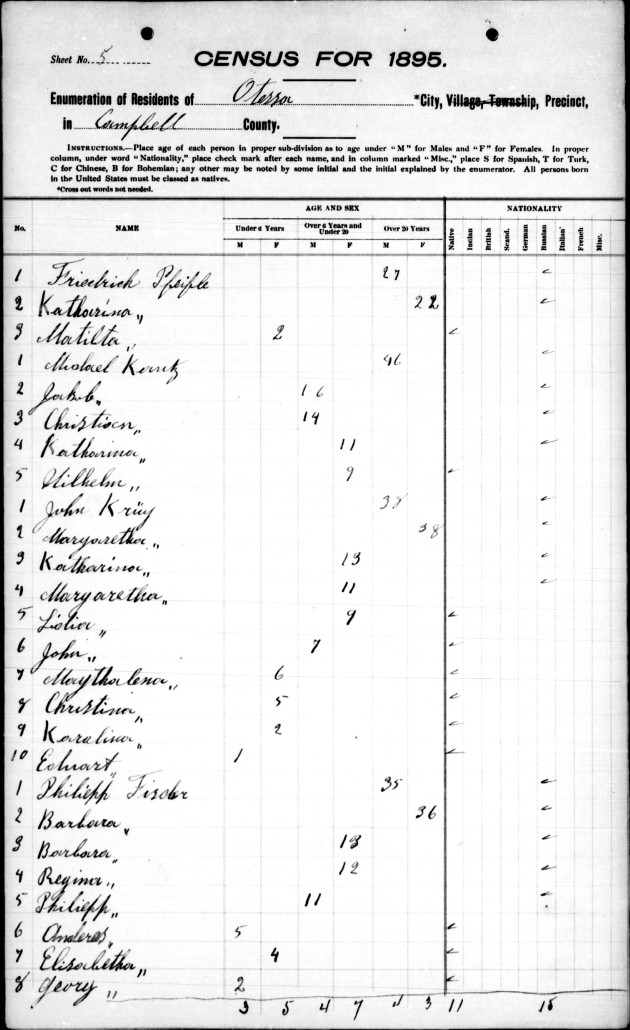 Sheet No. 5
CENSUS FOR 1895.
Enumeration of Residents of Otessa *City, Village, Township, Precinct,
in Campbell County.
INSTRUCTIONS.—Place age of each person in proper sub-division as to age under "M" for Males and "F" for Females. In proper
column, under word "Nationality," place check mark after each name, and in column marked "Misc.," place S for Spanish, T for Turk,
C for Chinese, B for Bohemian; any other may be noted by some initial and the initial explained by the enumerator. All persons born
in the United States must be classed as natives.
*Cross out words not needed.
AGE AND SEX NATIONALITY
No. NAME Under 6 Years Over 6 Years and Under 20 Over 20 Years Native Indian British Scand. German Russian Italian French Misc.
M F M F M F
1 Friedrich Pfeifle 27 ✓
2 Katharina " 22 ✓
3 Matilta " 2 ✓
1 Michael Kautz 46 ✓
2 Jakob " 16 ✓
3 Christian " 14 ✓
4 Katharina " 11 ✓
5 Wilhelm " 9 ✓
1 John Krüy 38 ✓
2 Margaretha " 38 ✓
3 Katharina " 13 ✓
4 Margaretha " 11 ✓
5 Lidia " 9 ✓
6 John " 7 ✓
7 Maythalena " 6 ✓
8 Christina " 5 ✓
9 Karalina " 2 ✓
10 Eduart " 1 ✓
1 Philiepp Fischer 35 ✓
2 Barbara " 36 ✓
3 Barbara " 13 ✓
4 Regina " 12 ✓
5 Philiepp " 11 ✓
6 Anderas " 5 ✓
7 Elisabetha " 4 ✓
8 Georg " 2 ✓
3 5 4 7 4 3 11 15